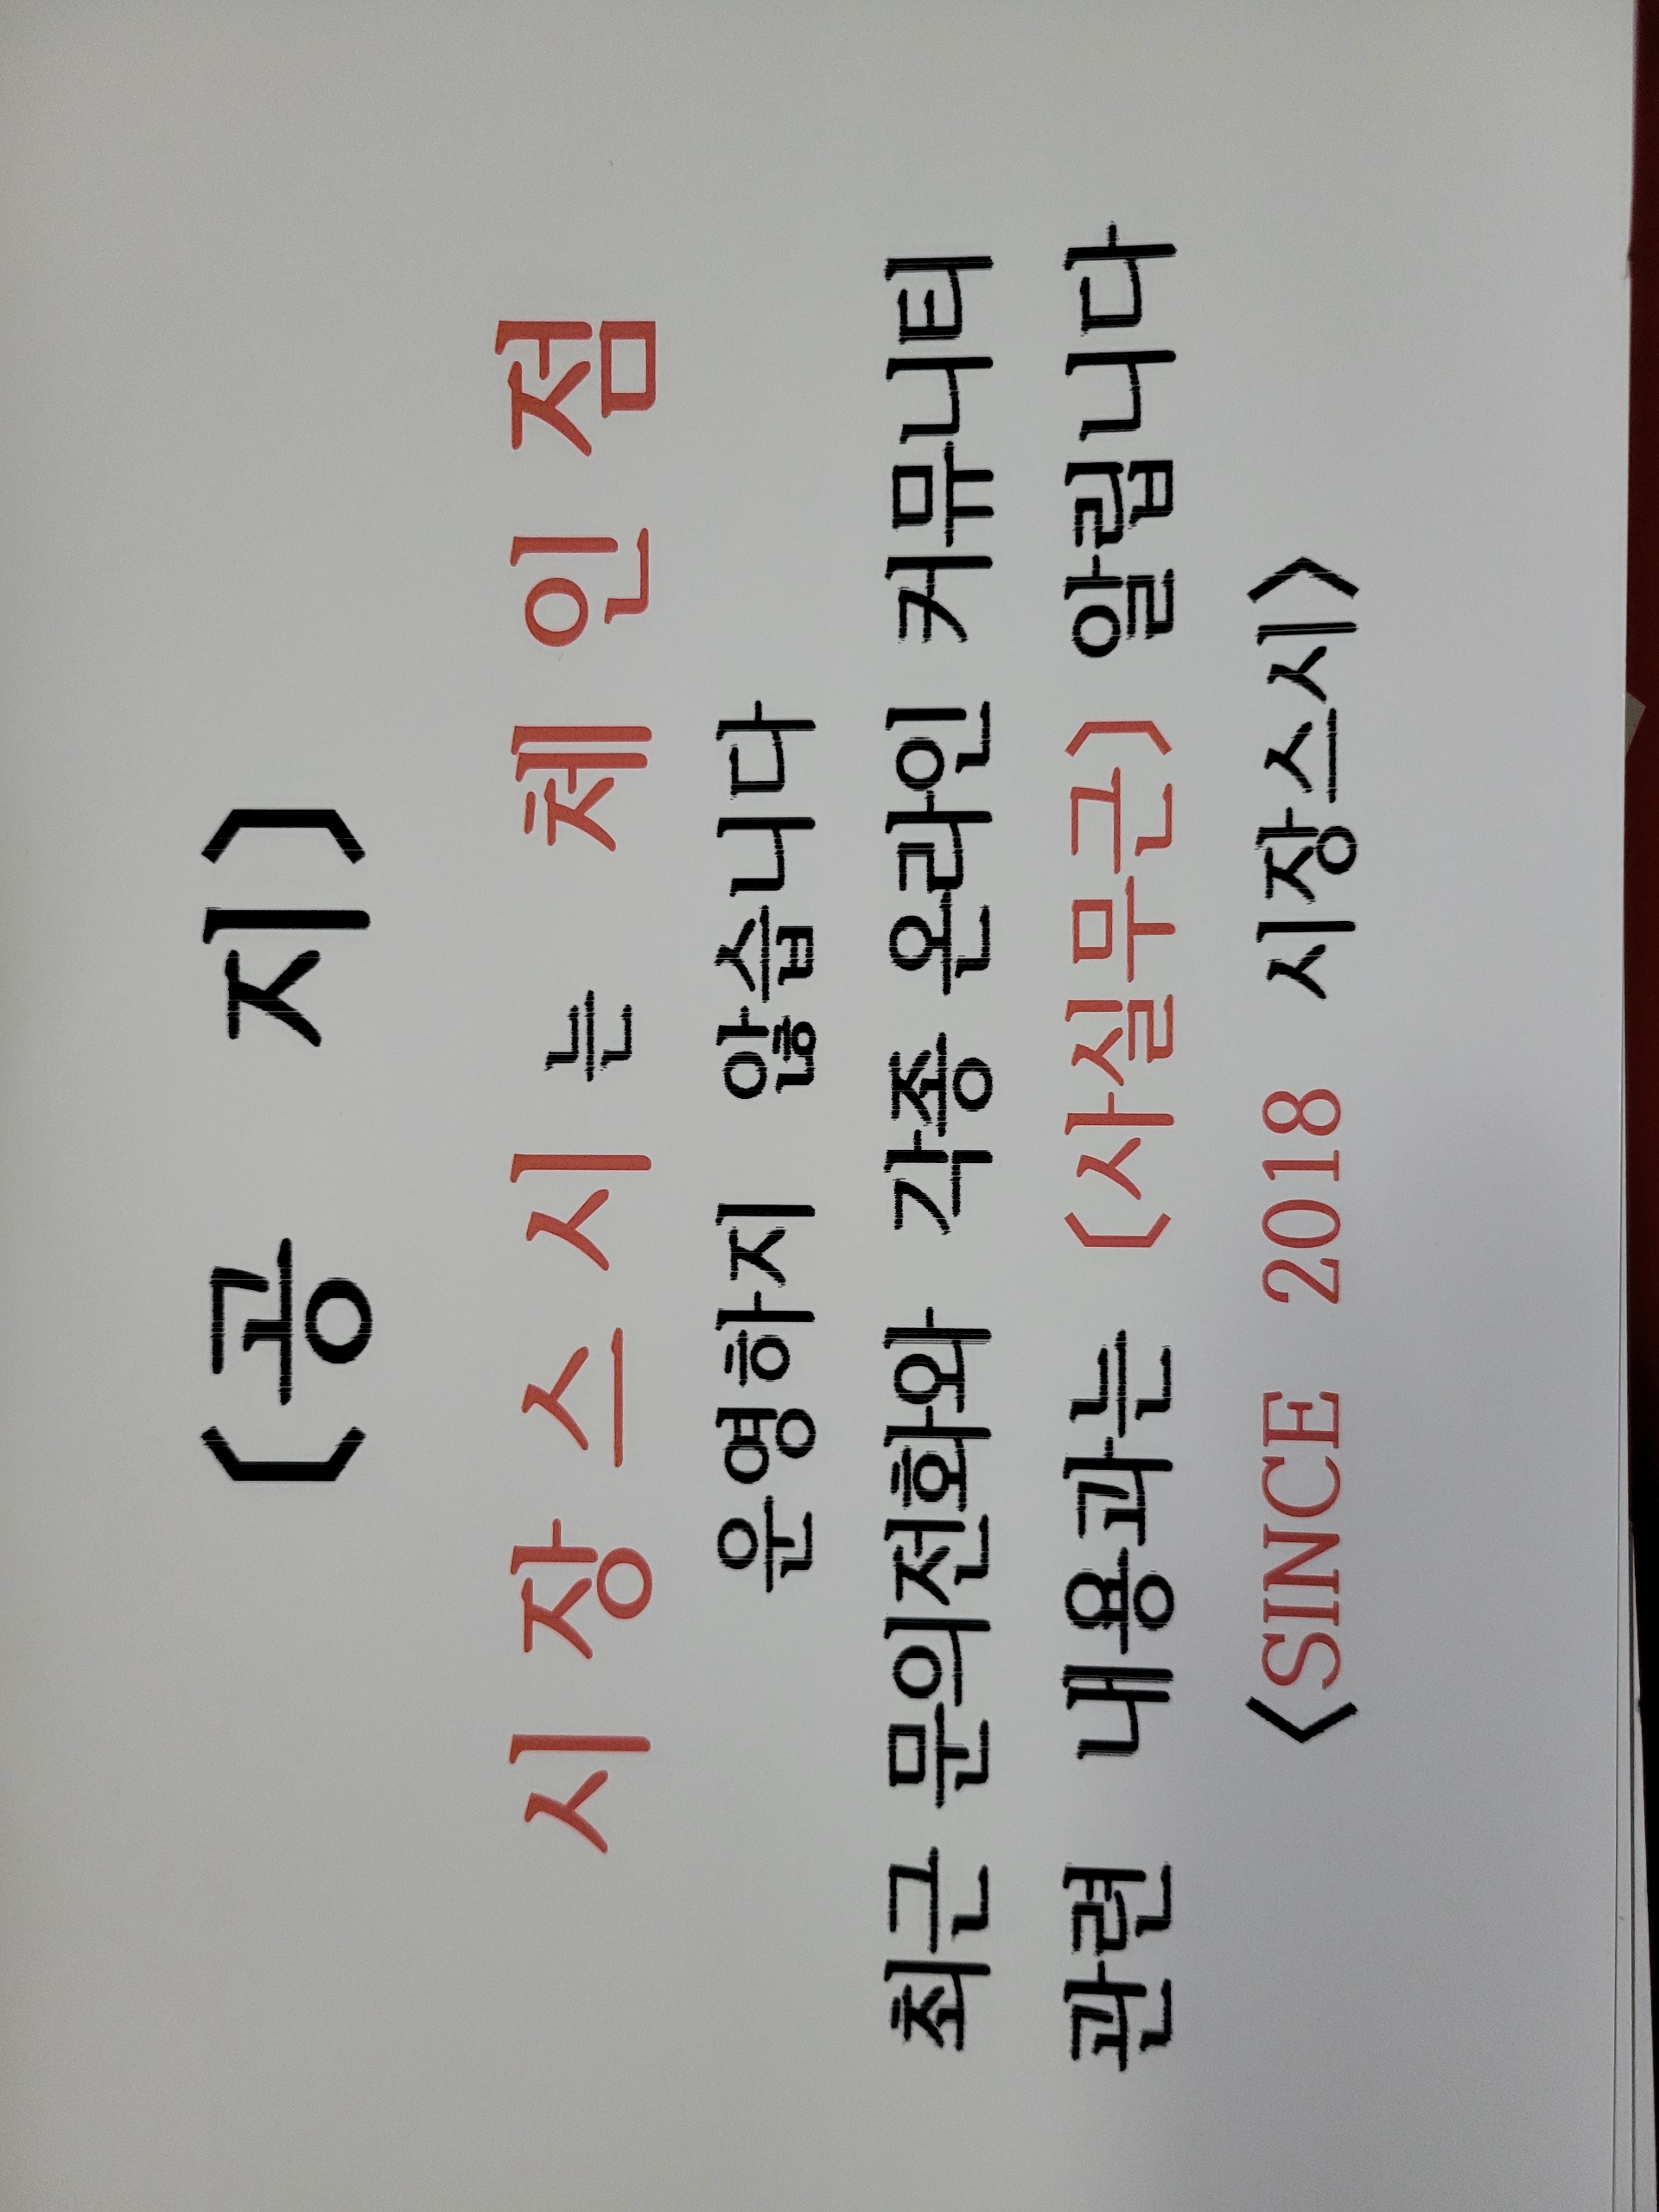 (공 지)
시 장 스 시 는 체 인 점
운영하지 않습니다
최근 문의전화와 각종 온라인 커뮤니티
관련 내용과는 (사실무근) 알립니다
<SINCE 2018 시장스시>